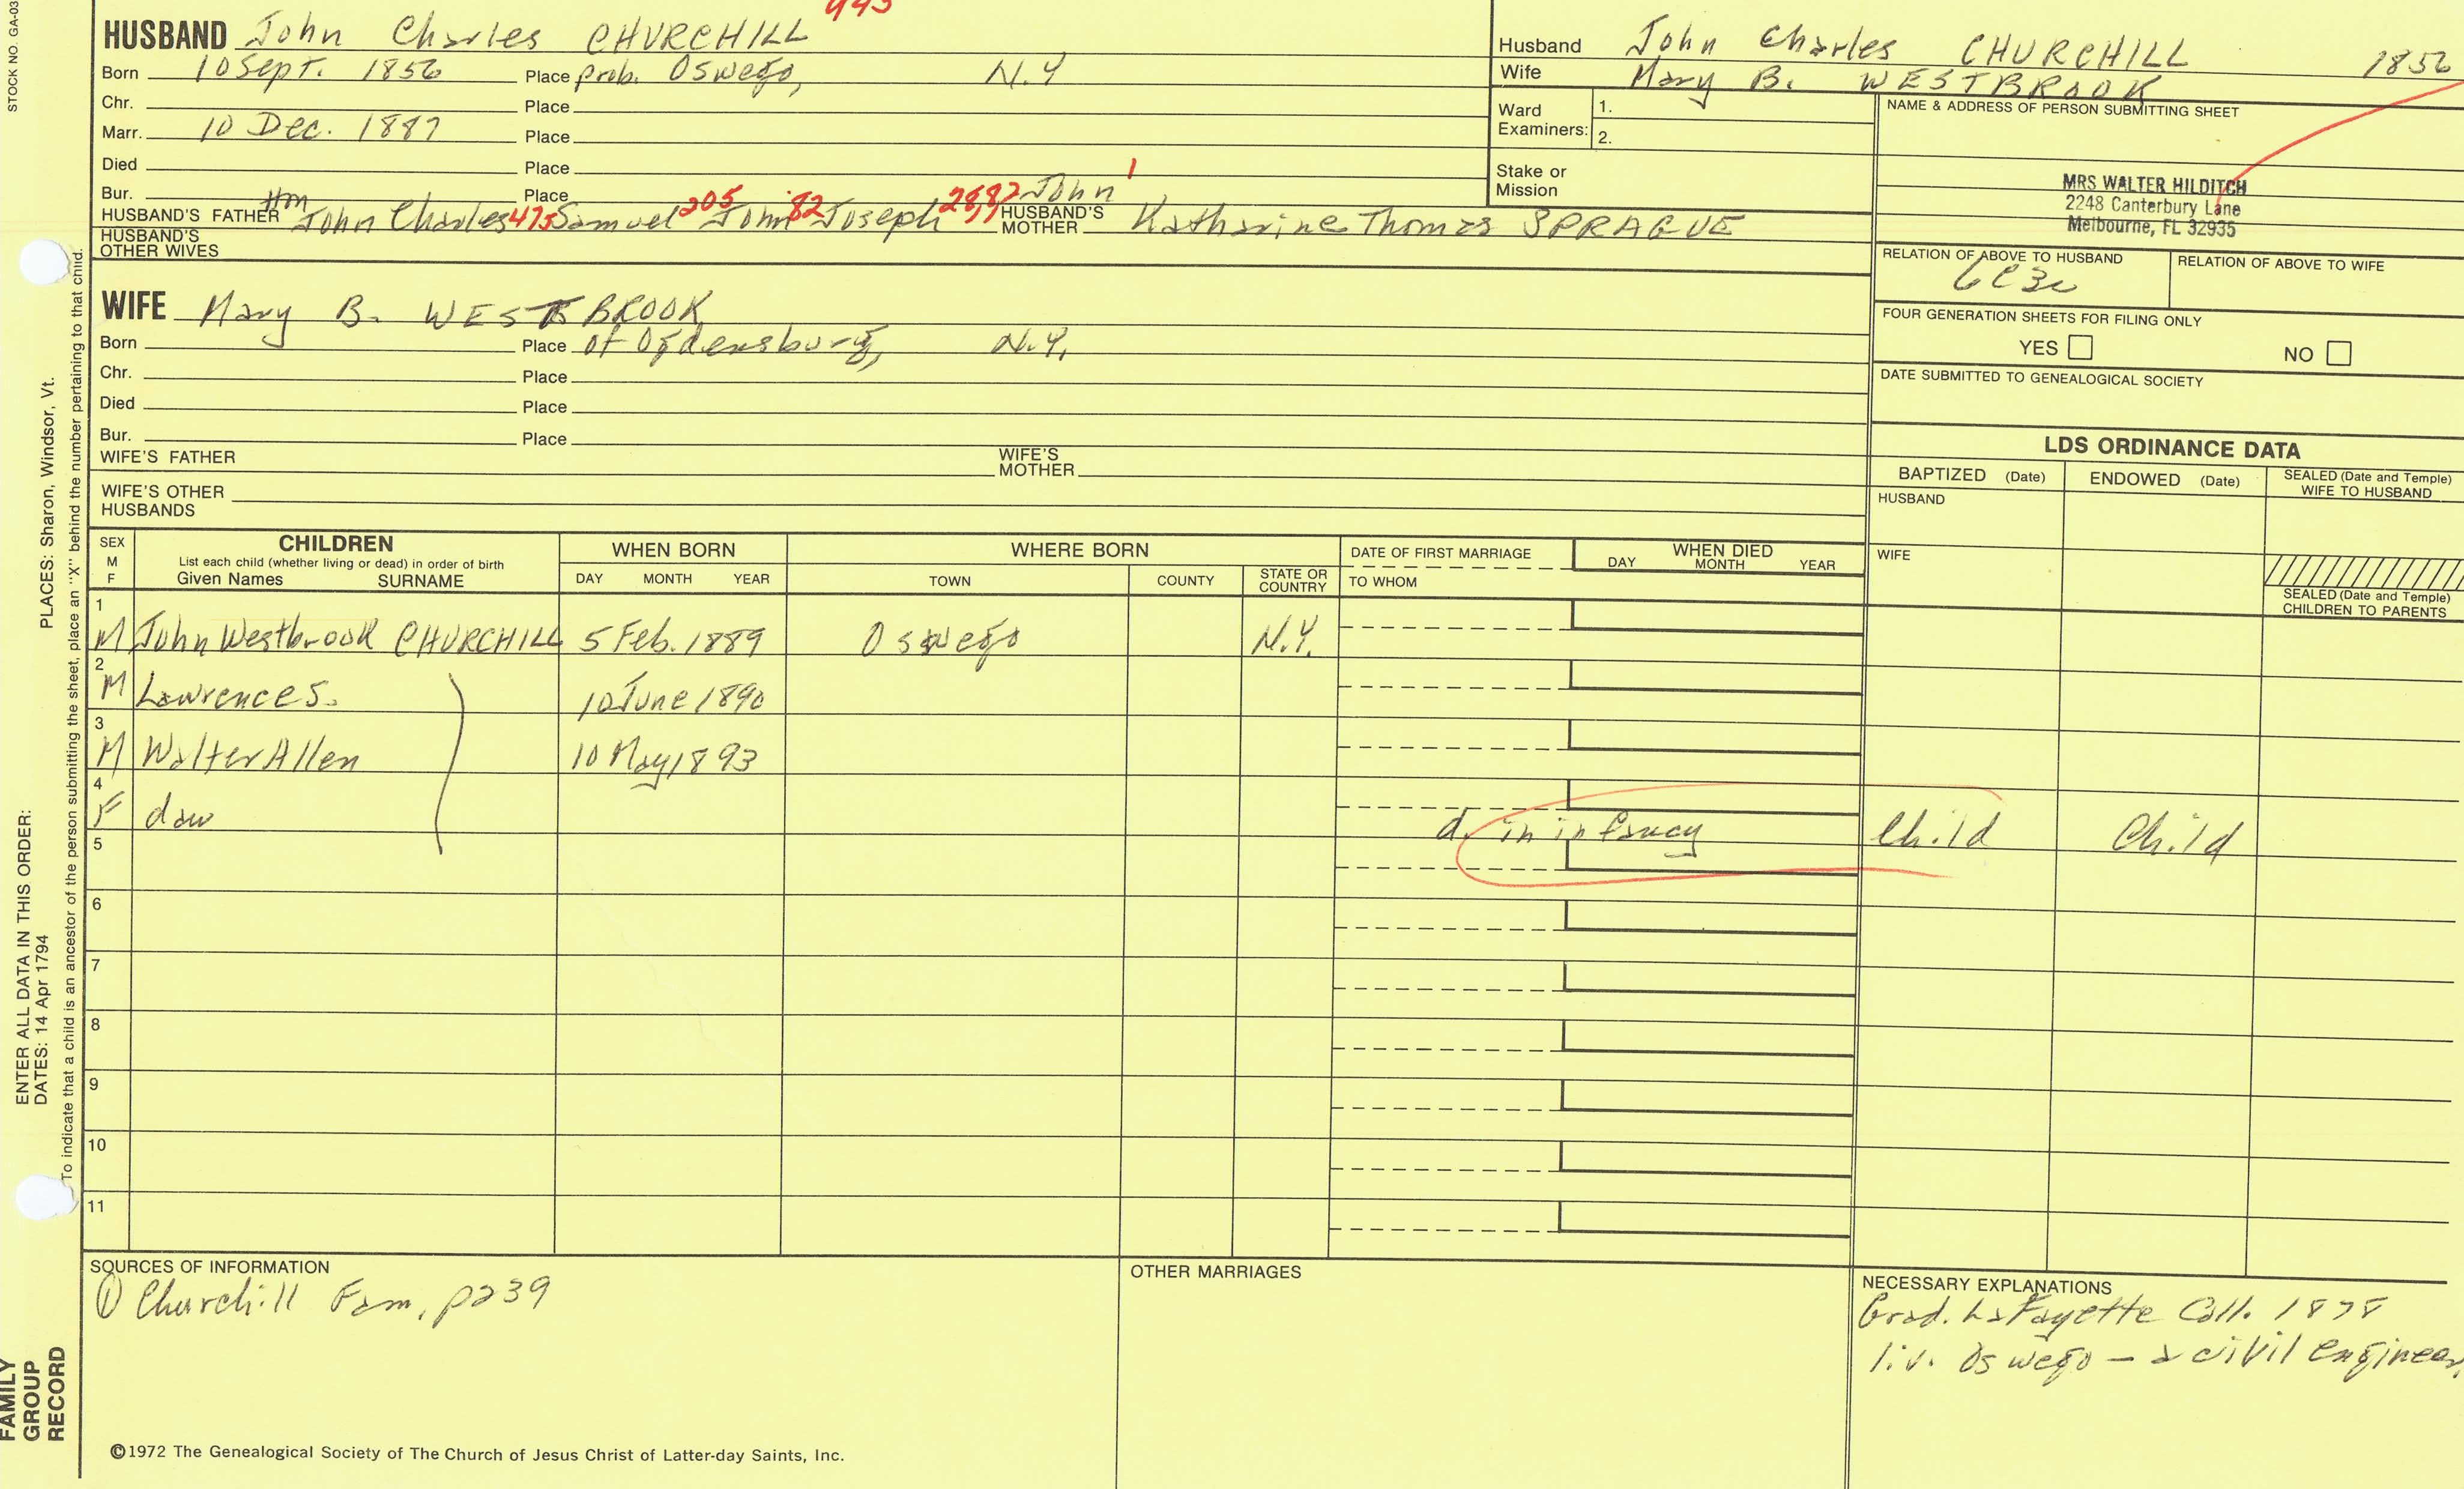 STOCK NO. GA-03
HUSBAND John Charles CHURCHILL
Born 10 Sept. 1856 Place prob. Oswego, N.Y
Chr. Place
Marr. 10 Dec. 1887 Place
Died Place
Bur. Place
HUSBAND'S FATHER Hon John Charles 475 Samuel 205 John 82 Joseph John 1
HUSBAND'S MOTHER Katharine Thomas SPRAGUE
HUSBAND'S OTHER WIVES
WIFE Mary B. WESTBROOK
Born Place of Ogdensburg, N.Y.
Chr. Place
Died Place
Bur. Place
WIFE'S FATHER
WIFE'S MOTHER
WIFE'S OTHER HUSBANDS
Husband John Charles CHURCHILL 1856
Wife Mary B. WESTBROOK
Ward Examiners: 1.
2.
Stake or Mission
NAME & ADDRESS OF PERSON SUBMITTING SHEET
MRS WALTER HILDITCH
2248 Canterbury Lane
Melbourne, FL 32935
RELATION OF ABOVE TO HUSBAND RELATION OF ABOVE TO WIFE
FOUR GENERATION SHEETS FOR FILING ONLY
YES NO
DATE SUBMITTED TO GENEALOGICAL SOCIETY
LDS ORDINANCE DATA
BAPTIZED (Date) ENDOWED (Date) SEALED (Date and Temple) WIFE TO HUSBAND
HUSBAND
WIFE
SEALED (Date and Temple) CHILDREN TO PARENTS
SEX M F
CHILDREN
List each child (whether living or dead) in order of birth
Given Names SURNAME
WHEN BORN
DAY MONTH YEAR
WHERE BORN
TOWN COUNTY STATE OR COUNTRY
DATE OF FIRST MARRIAGE
TO WHOM
WHEN DIED
DAY MONTH YEAR
1 M John Westbrook CHURCHILL 5 Feb. 1889 Oswego N.Y.
2 M Lawrence S. 10 June 1890
3 M Walter Allen 10 May 1893
4 F dau d. in infancy Child Child
5
6
7
8
9
10
11
SOURCES OF INFORMATION
① Churchill Fam, p239
OTHER MARRIAGES
NECESSARY EXPLANATIONS
Grad. LaFayette Coll. 1878
liv. Oswego – a civil engineer
©1972 The Genealogical Society of The Church of Jesus Christ of Latter-day Saints, Inc.
FAMILY
GROUP
RECORD
ENTER ALL DATA IN THIS ORDER:
DATES: 14 Apr 1794
PLACES: Sharon, Windsor, Vt.
To indicate that a child is an ancestor of the person submitting the sheet, place an "X" behind the number pertaining to that child.